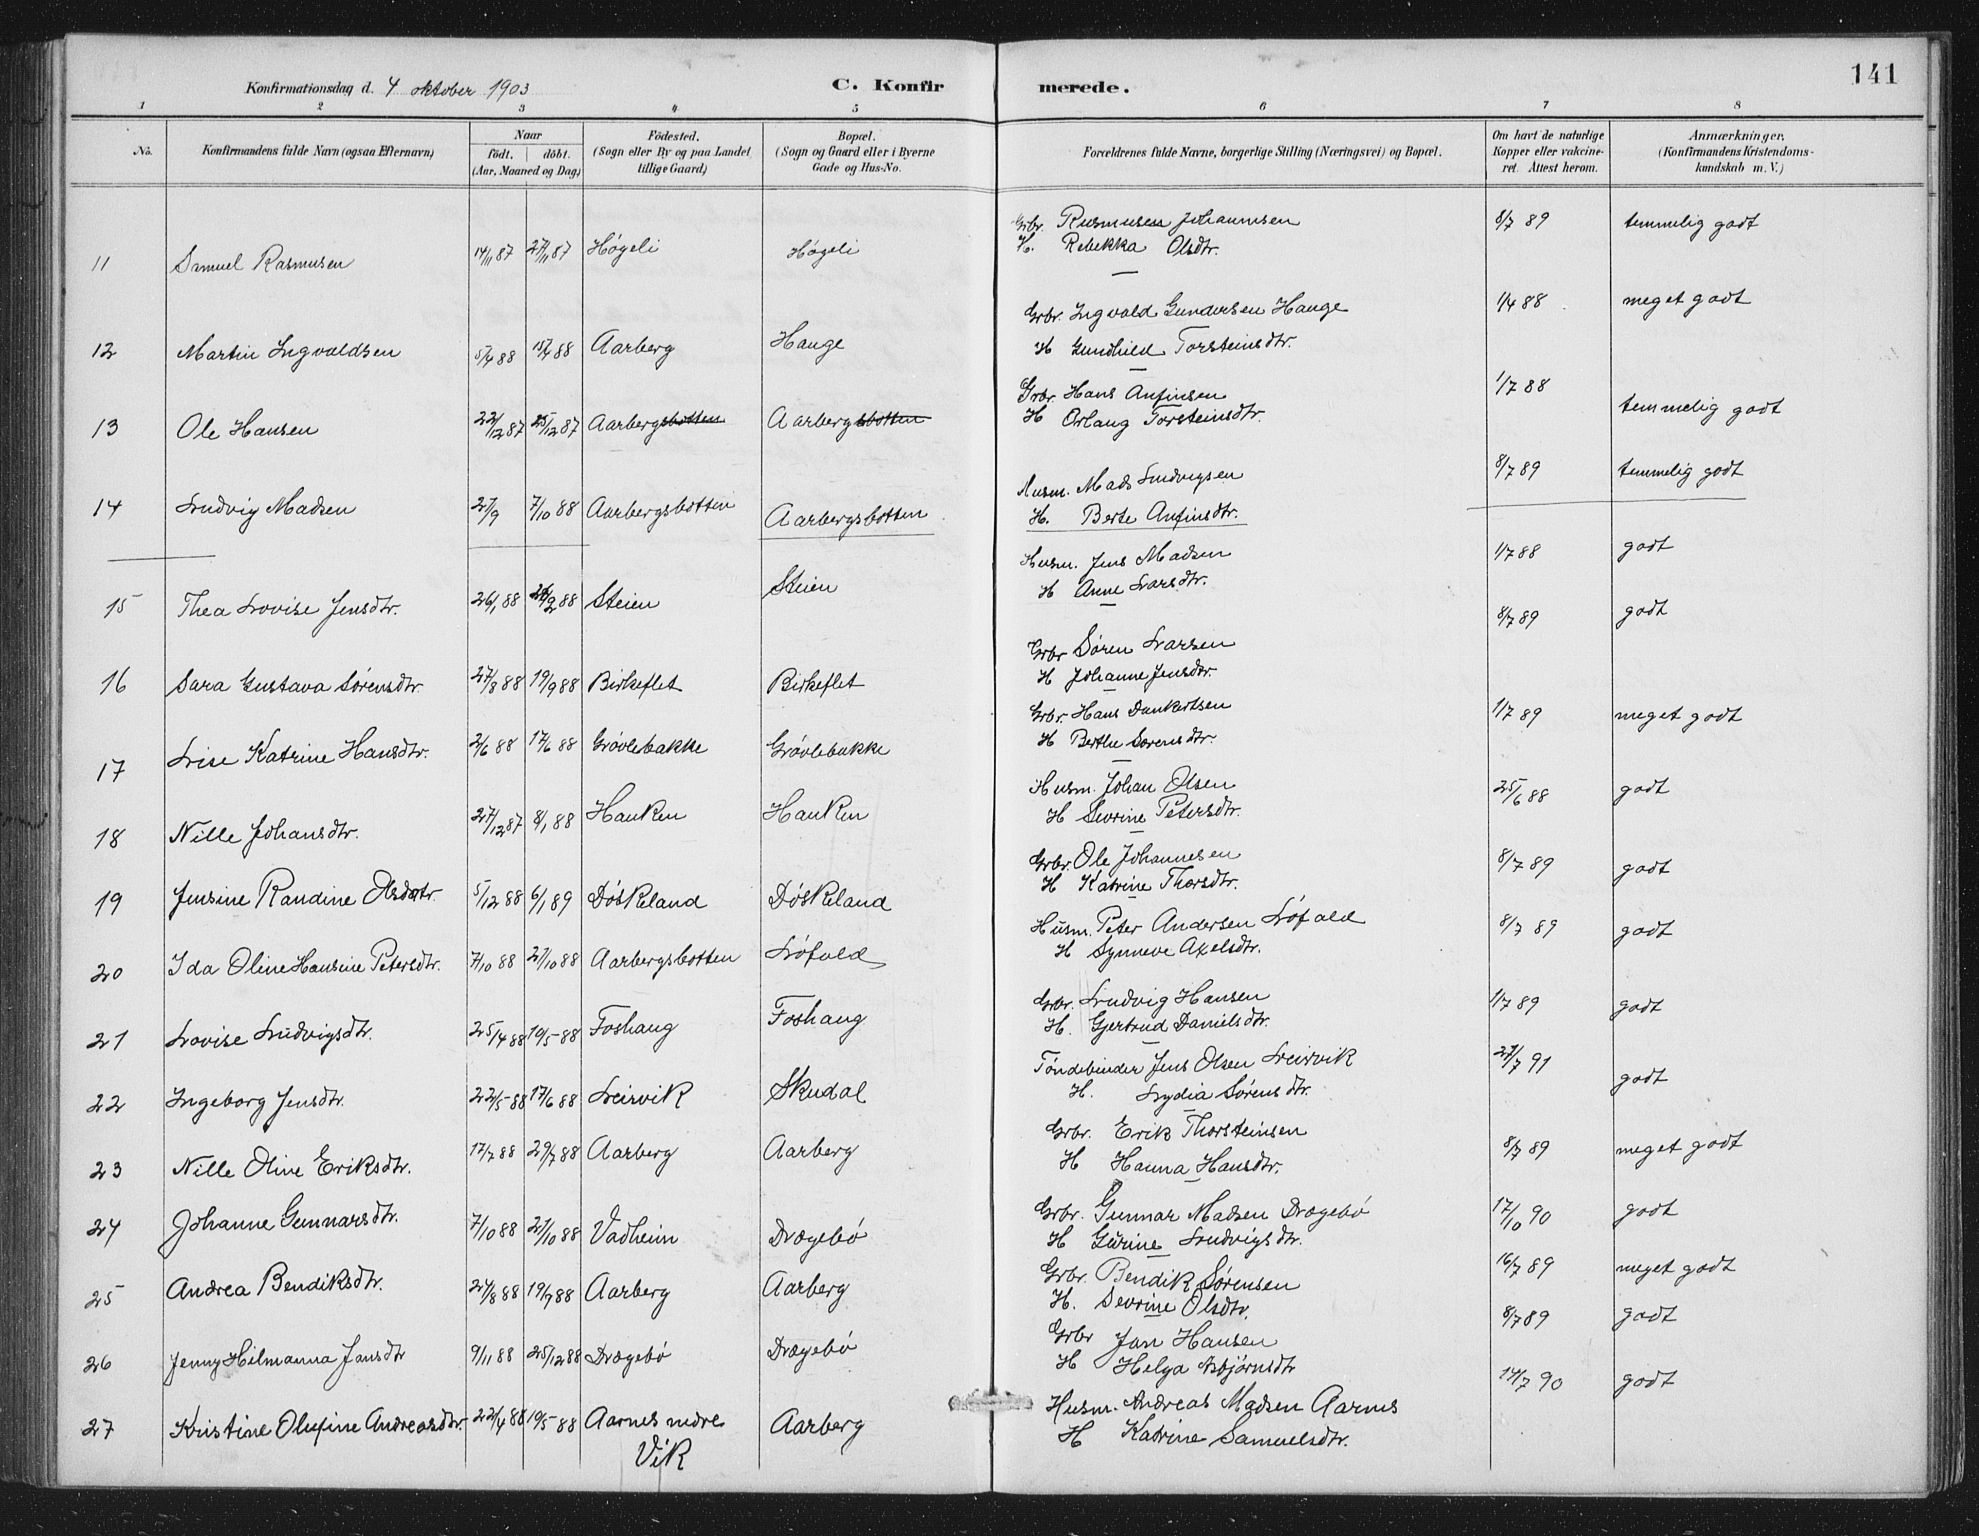 141
Konfirmationsdag d. 4 oktober 1903 C. Konfirmerede.
1 2 3 4 5 6 7 8
No. Konfirmandens fulde Navn (ogsaa Efternavn) Naar födt. döbt. (Aar, Maaned og Dag) Födested. (Sogn eller By og paa Landet tillige Gaard) Bopæl. (Sogn og Gaard eller i Byerne Gade og Hus-No. Forældrenes fulde Navne, borgerlige Stilling (Næringsvei) og Bopæl. Om havt de naturlige Kopper eller vakcineret. Attest herom. Anmærkninger. (Konfirmandens Kristendomskundskab m. V.)
11 Samuel Rasmusen 14/11 87 27/11 87 Høgeli Høgeli Grbr. Rasmusen Johannesen 8/7 89 temmelig godt
H. Rebekka Olsdtr.
12 Martin Ingvaldsen 5/4 88 15/4 88 Aarberg Hauge Grbr. Ingvald Gundersen Hauge 1/4 88 meget godt
H Gundhild Torsteinsdtr.
13 Ole Hansen 22/12 87 25/12 87 Aarbergsbotten Aarbergsbotten Grbr. Hans Anfinsen 1/7 88 temmelig godt
H Erlaug Torsteinsdtr.
14 Ludvig Madsen 27/9 7/10 88 Aarbergsbotten Aarbergsbotten Husm. Mads Ludvigsen 8/7 89 temmelig godt
H. Berte Anfinsdtr.
15 Thea Lovise Jensdtr. 26/1 88 26/2 88 Steien Steien Husm. Jens Madsen 1/7 88 godt
H Anne Larsdtr.
16 Sara Gustava Sörensdtr. 27/8 88 19/9 88 Birkeflet Birkeflet Grbr Søren Larsen 8/7 89 godt
H Johanne Jensdtr.
17 Lise Katrine Hansdtr. 2/6 88 17/6 88 Grøvlebakke Grøvlebakke Grbr. Hans Dankertsen 1/7 89 meget godt
H Berthe Sørensdtr.
18 Nille Johansdtr. 27/12 87 8/1 88 Hauken Hauken Husm. Johan Olsen 25/6 88 godt
H Sevrine Petersdtr.
19 Jensine Randine Olsdtr. 5/12 88 6/1 89 Døskeland Døskeland Grbr. Ole Johannesen 8/7 89 godt
H Katrine Thorsdtr.
20 Ida Oline Hansine Petersdtr. 7/10 88 27/10 88 Aarbergsbotten Løfald Husm. Peter Andersen Løfald 8/7 89 godt
H Synneve Axelsdtr.
21 Lovise Ludvigsdtr. 25/4 88 19/5 88 Foshaug Foshaug Grbr. Ludvig Hansen 1/7 89 godt
H. Gjertrud Danielsdtr.
22 Ingeborg Jensdtr. 22/5 88 17/6 88 Leirvik Skudal Tøndebinder Jens Olsen Leirvik 27/7 91 godt
H. Lydia Sørensdtr.
23 Nille Oline Eriksdtr. 17/7 88 29/7 88 Aarberg Aarberg Grbr. Erik Thorsteinsen 8/7 89 meget godt
H Hanna Hansdtr.
24 Johanne Gunnarsdtr. 7/10 88 27/10 88 Vadheim Drægebö Grbr. Gunnar Madsen Drægebö 17/10 90 godt
H Gurine Ludvigsdtr.
25 Andrea Bendiksdtr. 27/8 88 19/9 88 Aarberg Aarberg Grbr. Bendik Sørensen 16/7 89 meget godt
H. Sevrine Olsdtr.
26 Jenny Hilmanna Jansdtr 9/11 88 25/12 88 Drægebö Drægebö Grbr Jan Hansen 8/7 89 godt
H Helga Asbjørnsdtr
27 Kristine Olufine Andreasdtr. 22/4 88 19/5 88 Aarnes nedre Vik Aarberg Husm. Andreas Madsen Aarnes 14/7 90 godt
H Katrine Samuelsdtr.